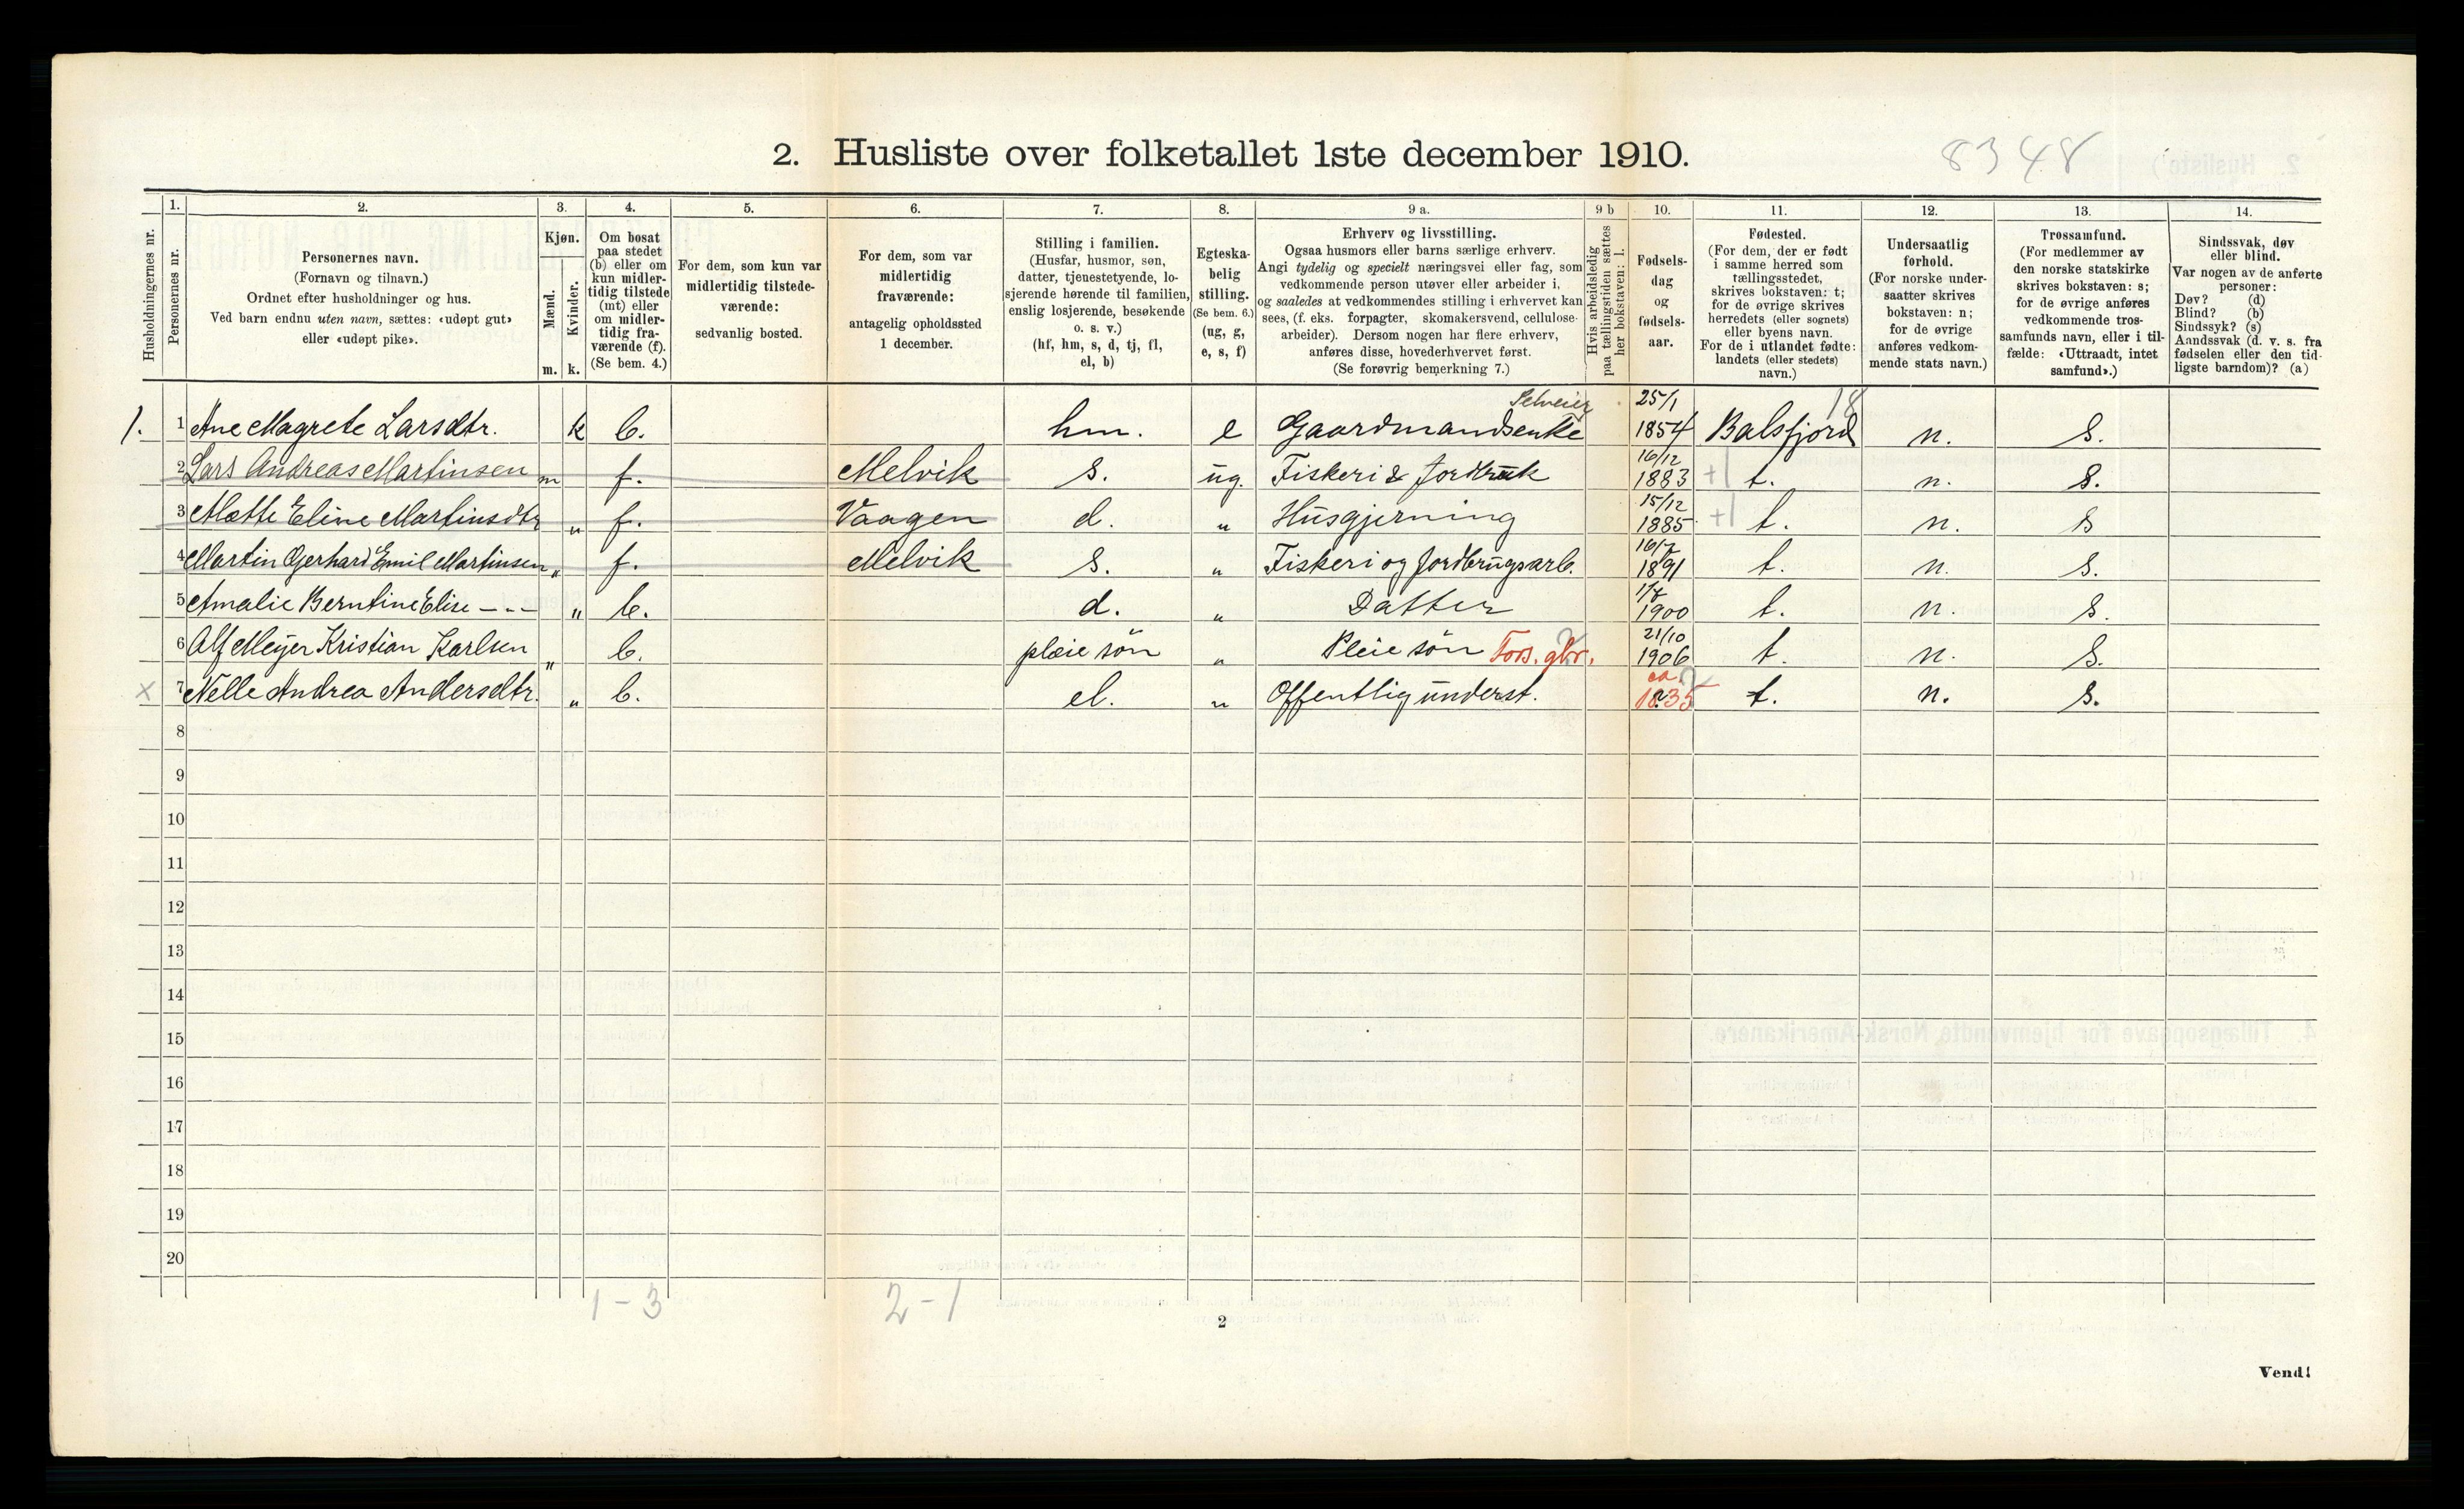 8348
2. Husliste over folketallet 1ste december 1910.
Husholdningernes nr.
1.
Personernes nr.
2.
Personernes navn.
(Fornavn og tilnavn.)
Ordnet efter husholdninger og hus.
Ved barn endnu uten navn, sættes: «udøpt gut»
eller «udøpt pike».
3.
Kjøn.
Mænd.
Kvinder.
m. k.
4.
Om bosat
paa stedet
(b) eller om
kun midler-
tidig tilstede
(mt) eller
om midler-
tidig fra-
værende (f).
(Se bem. 4.)
5.
For dem, som kun var
midlertidig tilstede-
værende:
sedvanlig bosted.
6.
For dem, som var
midlertidig
fraværende:
antagelig opholdssted
1 december.
7.
Stilling i familien.
(Husfar, husmor, søn,
datter, tjenestetyende, lo-
sjerende hørende til familien,
enslig losjerende, besøkende
o. s. v.)
(hf, hm, s, d, tj, fl,
el, b)
8.
Egteska-
belig
stilling.
(Se bem. 6.)
(ug, g,
e, s, f)
9 a.
Erhverv og livsstilling.
Ogsaa husmors eller barns særlige erhverv.
Angi tydelig og specielt næringsvei eller fag, som
vedkommende person utøver eller arbeider i,
og saaledes at vedkommendes stilling i erhvervet kan
sees, (f. eks. forpagter, skomakersvend, cellulose-
arbeider). Dersom nogen har flere erhverv,
anføres disse, hovederhvervet først.
(Se forøvrig bemerkning 7.)
9 b
Hvis arbeidsledig
paa tællingstiden sættes
her bokstaven: l.
10.
Fødsels-
dag
og
fødsels-
aar.
11.
Fødested.
(For dem, der er født
i samme herred som
tællingsstedet,
skrives bokstaven: t;
for de øvrige skrives
herredets (eller sognets)
eller byens navn.
For de i utlandet fødte:
landets (eller stedets)
navn.)
12.
Undersaatlig
forhold.
(For norske under-
saatter skrives
bokstaven: n;
for de øvrige
anføres vedkom-
mende stats navn.)
13.
Trossamfund.
(For medlemmer av
den norske statskirke
skrives bokstaven: s;
for de øvrige anføres
vedkommende tros-
samfunds navn, eller i til-
fælde: «Uttraadt, intet
samfund».)
14.
Sindssvak, døv
eller blind.
Var nogen av de anførte
personer:
Døv? (d)
Blind? (b)
Sindssyk? (s)
Aandssvak (d. v. s. fra
fødselen eller den tid-
ligste barndom)? (a)
Selveier 25/1 18
1. 1 Ane Magrete Larsdtr. k b. hm. e Gaardmandsenke 1854 Balsfjord n. s.
16/12
2 Lars Andreas Martinsen m f. Melvik s. ug. Fiskeri & Jordbruk 1883 +1 t. n. s.
15/12
3 Mætte Eline Martinsdtr " f. Vaagen d. " Husgjerning 1885 +1 t. n. s
16/7
4 Martin Gerhard Emil Martinsen " f. Melvik s. " Fiskeri og Jordbrugsarb. 1891 t. n. s.
1/7
5 Amalie Berntine Elise - - - " b. d. " Datter 1900 t. n. s.
21/10
6 Alf Meyer Kristian Karlsen " b. pleie søn " Pleie søn Fors. gbr. 1906 t. n. s.
ca.
x 7 Nelle Andrea Andersdtr. " b. el. " Offentlig underst. 1835 t. n. s.
8
9
10
11
12
13
14
15
16
17
18
19
20
1 - 3 2 - 1
2
Vend!